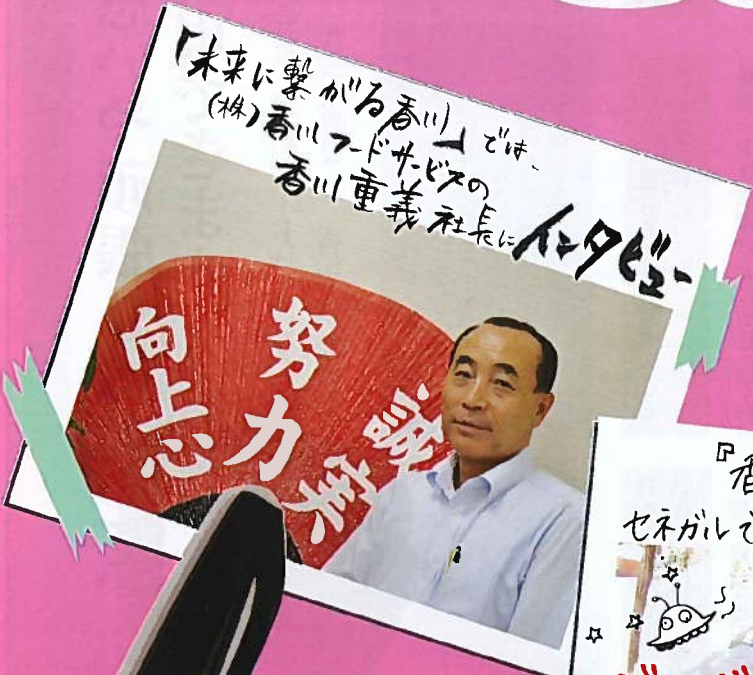 「未来に繋がる香川」では、
(株)香川フードサービスの
香川重義社長にインタビュー
向上心
努力
誠実
『香
セネガルで